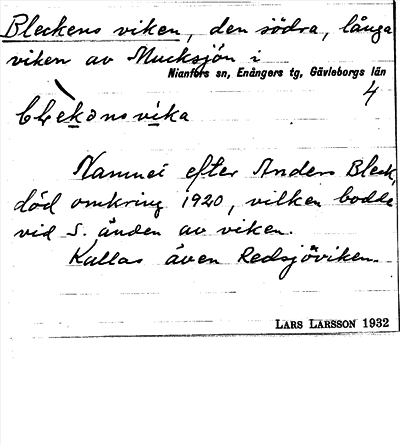 Bleckens viken, den södra, långa
viken av Mucksjön i
Nianfors sn, Enångers tg, Gävleborgs län
4
blekonsvika
Namnet efter Anders Bleck,
död omkring 1920, vilken bodde
vid S. änden av viken.
Kallas även Redsjöviken.
LARS LARSSON 1932